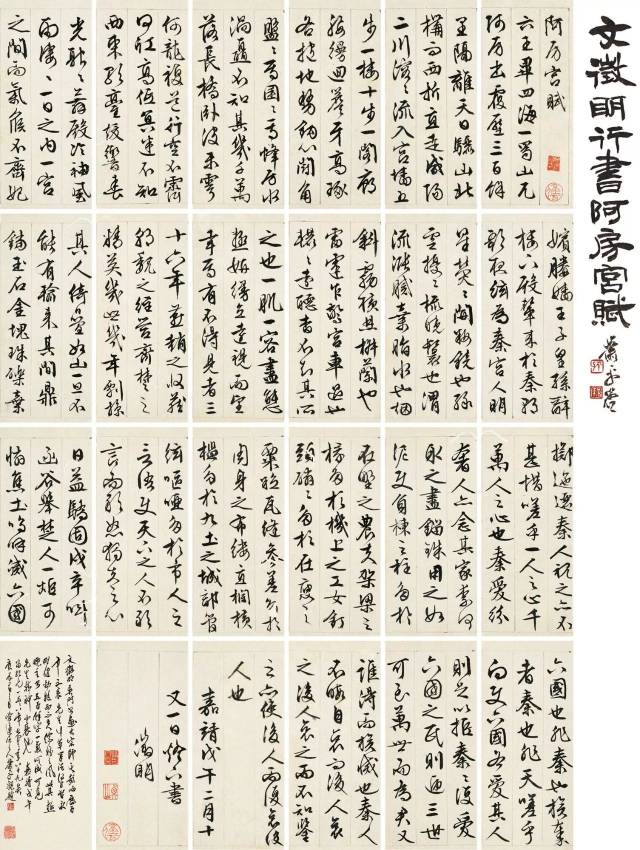 文徵明行书阿房宫賦
阿房宮賦
六王畢四海一蜀山兀
阿房出覆壓三百餘
里隔離天日驪山北
構而西折直走咸陽
二川溶〻流入宮墻五
步一樓十步一閣廊
腰縵迴簷牙高琢
各抱地勢鈎心鬥角
盤〻焉囷〻焉蜂房水
渦矗不知其幾千萬
落長橋臥波未雲
何龍複道行空不霽
何虹高低冥迷不知
西東歌臺暖響春
光融〻舞殿冷袖風
雨凄〻一日之内一宮
之間而氣候不齊妃
嬪媵嬙王子皇孫辭
樓下殿輦來於秦朝
歌夜絃為秦宮人明
星熒〻開粧鏡也綠
雲擾〻梳曉鬟也渭
流漲膩棄脂水也烟
斜霧橫焚椒蘭也
雷霆乍驚宮車過也
轆〻遠聽杳不知其所
之也一肌一容盡態
極妍縵立遠視而望
幸焉有不得見者三
十六年燕趙之收藏
韓魏之經營齊楚之
精英幾世幾年剽掠
其人倚疊如山一旦不
能有輸來其間鼎
鐺玉石金塊珠礫棄
擲邐迤秦人視之亦不
甚惜嗟乎一人之心千
萬人之心也秦愛紛
奢人亦念其家奈何
取之盡錙銖用之如
泥沙使負棟之柱多於
南畝之農夫架梁之
椽多於機上之工女釘
頭磷〻多於在庾之
粟粒瓦縫參差多於
周身之帛縷直欄橫
檻多於九土之城郭管
絃嘔啞多於市人之
言語使天下之人不敢
言而敢怒獨夫之心
日益驕固戍卒叫
函谷舉楚人一炬可
憐焦土嗚呼滅六國
六國也非秦也族秦
者秦也非天下嗟乎
向使六國各愛其人
則足以拒秦〻復愛
六國之民則遞三世
可至萬世而為君又
誰得而族滅也秦人
不暇自哀而後人哀
之後人哀之而不知鑒
之亦使後人而復哀後
人也
嘉靖戊午二月十
又一日燈下書
徵明